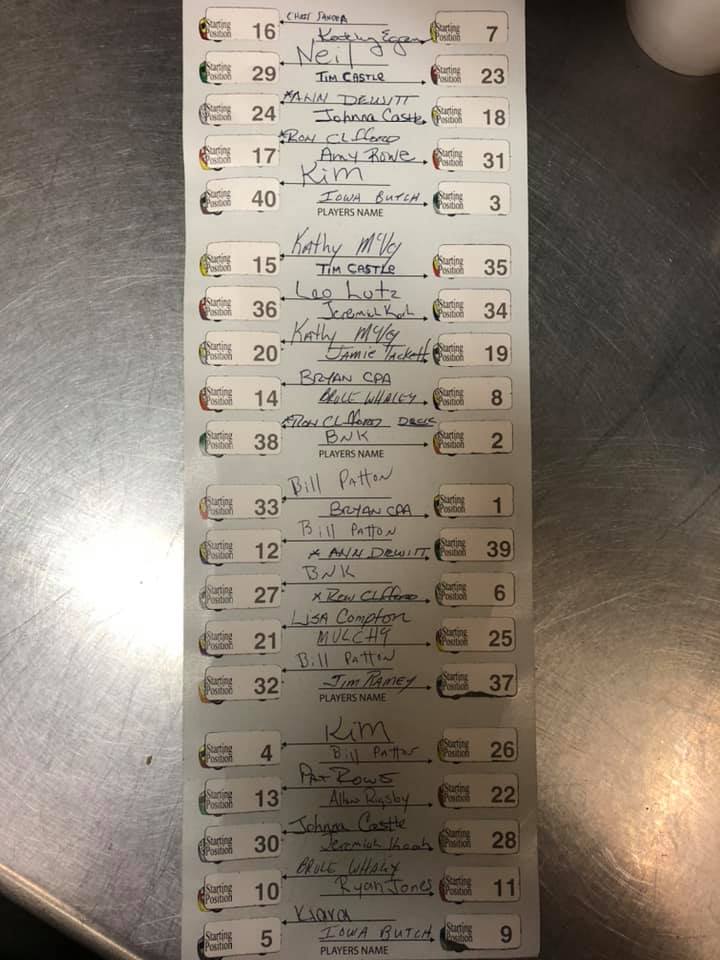 Starting Position 16 CHRIS SANDER
Kathy Egan Starting Position 7
Starting Position 29 Neil
TIM CASTLE Starting Position 23
Starting Position 24 *ANN DEWITT
Johnna Castle Starting Position 18
Starting Position 17 *RON Clifford
Amy Rowe Starting Position 31
Starting Position 40 Kim
IOWA BUTCH Starting Position 3
PLAYERS NAME
Starting Position 15 Kathy McVey
TIM CASTLE Starting Position 35
Starting Position 36 Leo Lutz
Jeremiah Starting Position 34
Starting Position 20 Kathy McVey
JAMIE Tackett Starting Position 19
Starting Position 14 BRYAN CPA
BRUCE WHALEY Starting Position 8
Starting Position 38 *RON Clifford
BNK Starting Position 2
PLAYERS NAME
Starting Position 33 Bill Patton
BRYAN CPA Starting Position 1
Starting Position 12 Bill Patton
* ANN DEWITT Starting Position 39
Starting Position 27 BNK
x Ron Clifford Starting Position 6
Starting Position 21 LISA Compton
MULCHY Starting Position 25
Starting Position 32 Bill Patton
JIM RAMEY Starting Position 37
PLAYERS NAME
Starting Position 4 Kim
Bill Patton Starting Position 26
Starting Position 13 PAT ROWE
Allan Rigsby Starting Position 22
Starting Position 30 Johnna Castle
Jeremiah Starting Position 28
Starting Position 10 BRUCE WHALEY
Ryan Jones Starting Position 11
Starting Position 5 Kiara
IOWA BUTCH Starting Position 9
PLAYERS NAME